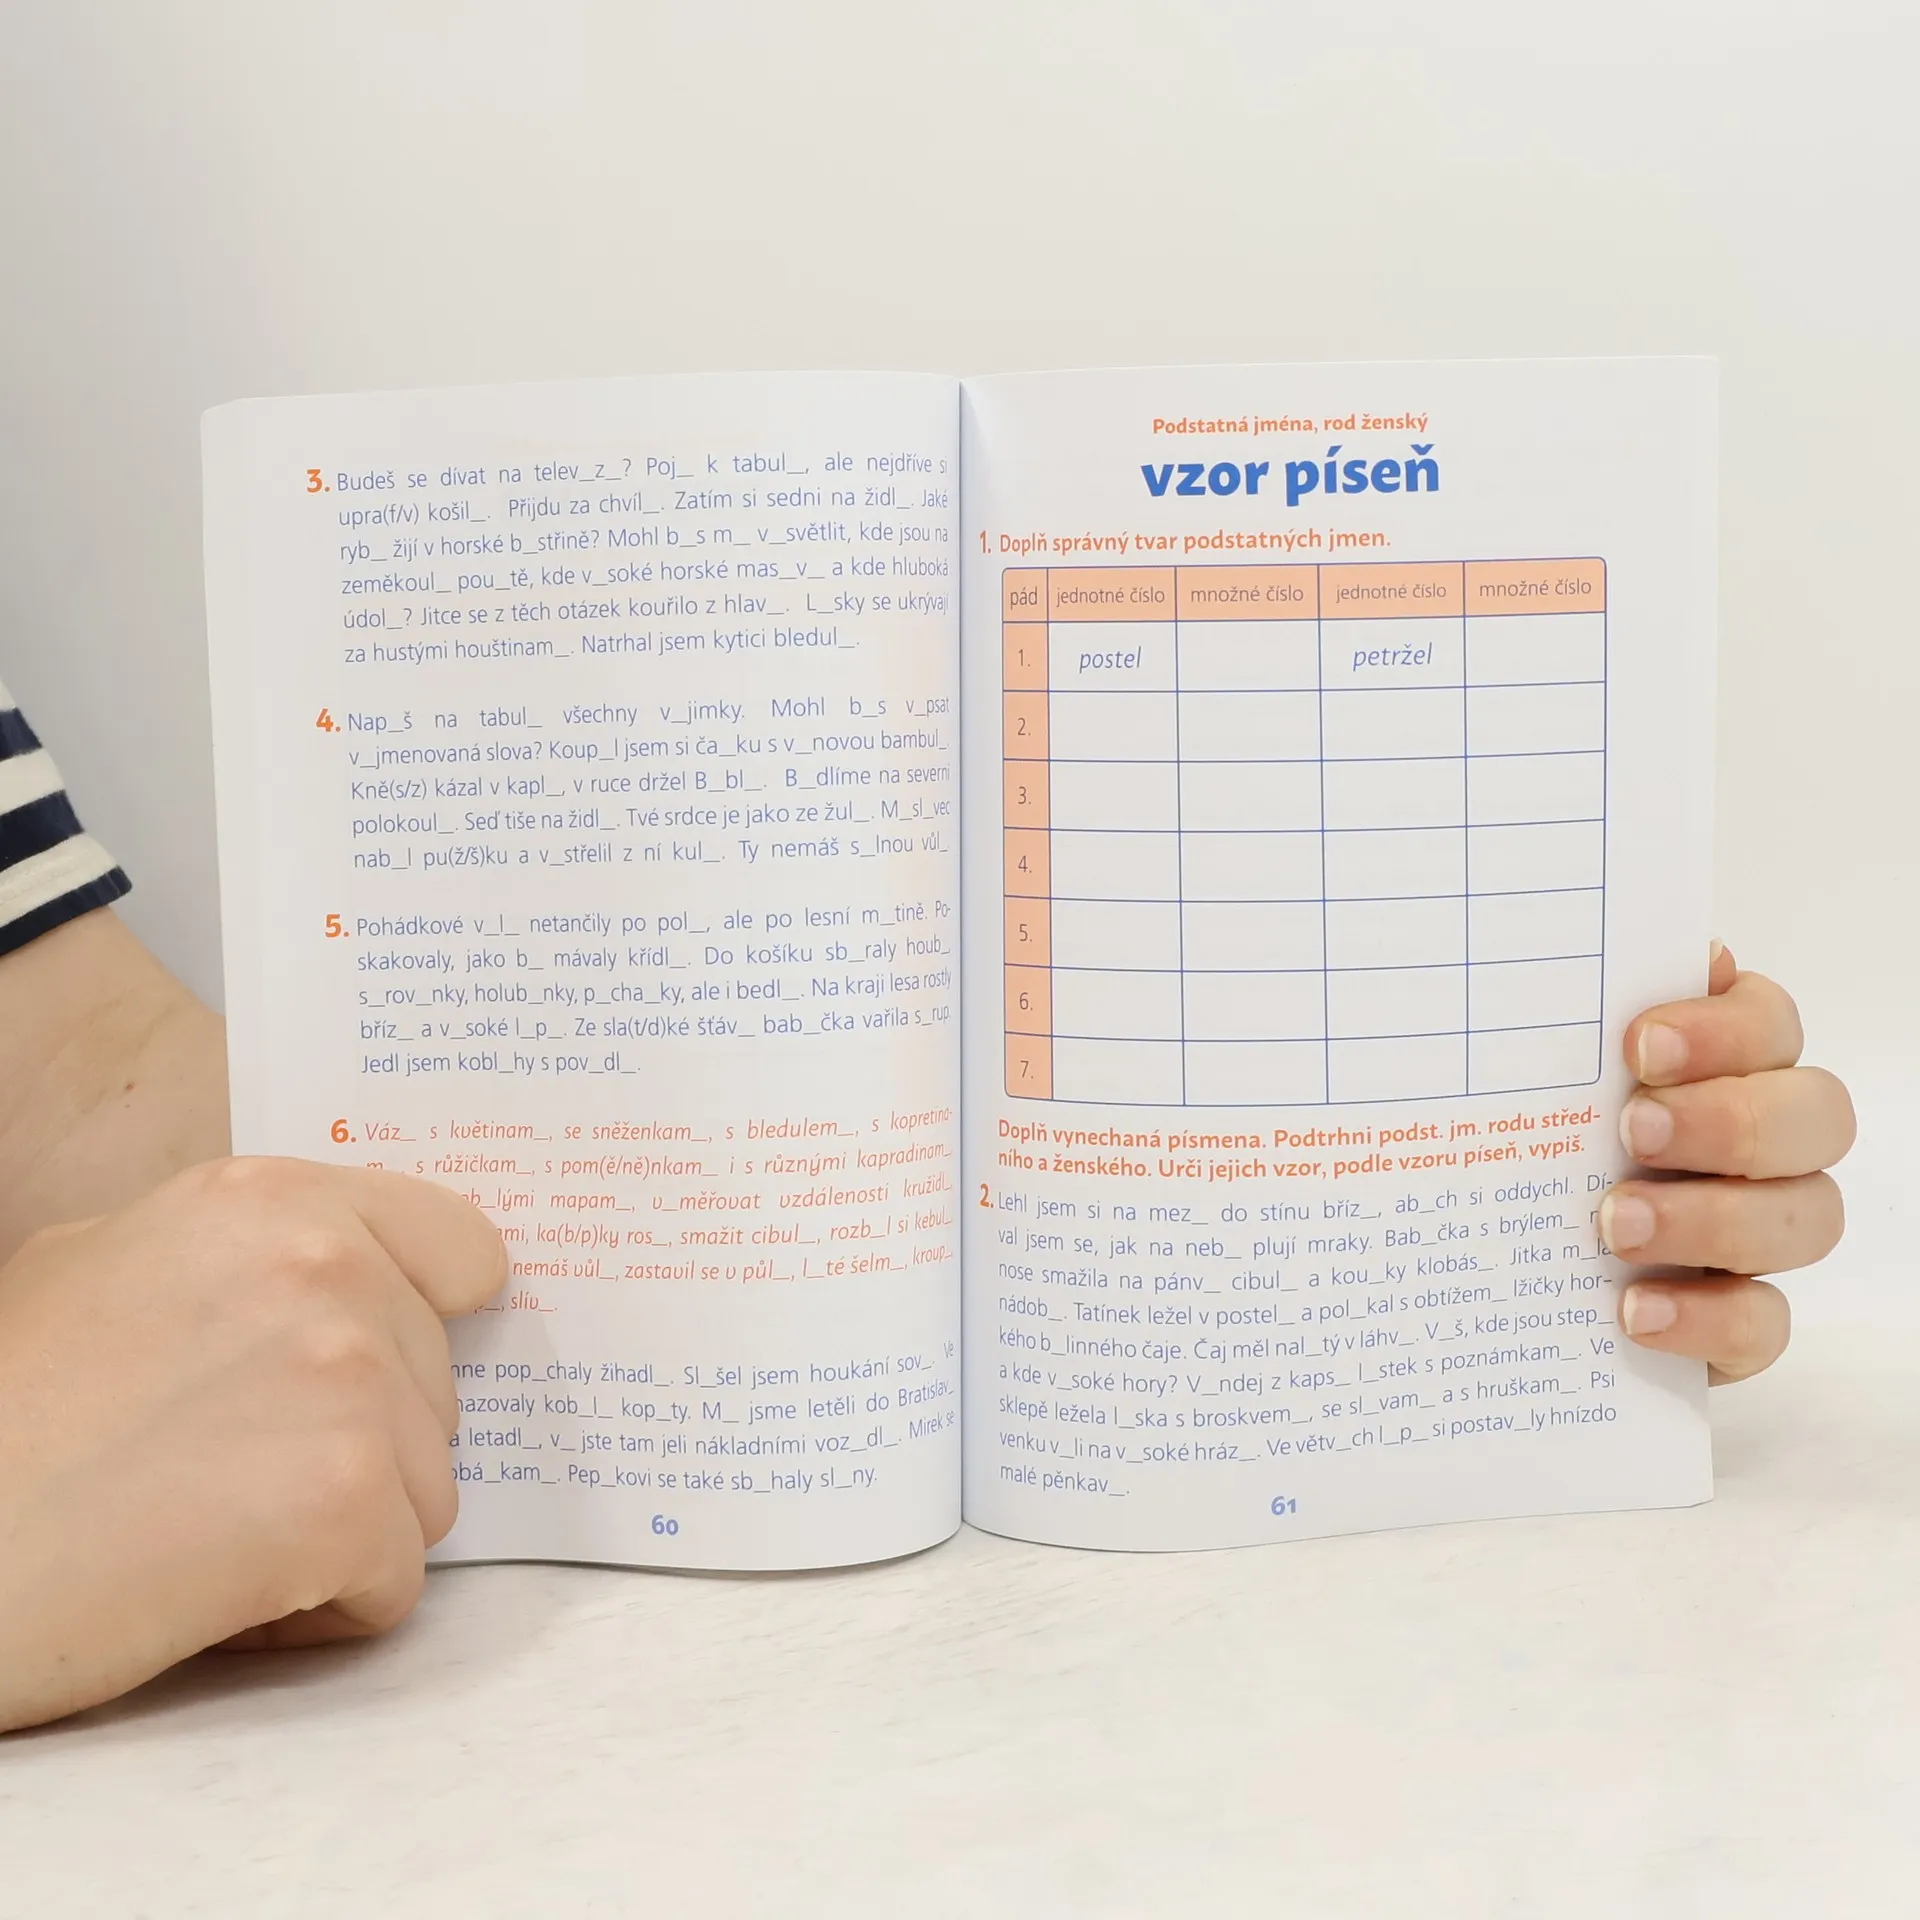 3. Budeš se dívat na telev_z_? Poj_ k tabul_, ale nejdříve si
upra(f/v) košil_. Přijdu za chvíl_. Zatím si sedni na židl_. Jaké
ryb_ žijí v horské b_střině? Mohl b_s m_ v_světlit, kde jsou na
zeměkoul_ pou_tě, kde v_soké horské mas_v_ a kde hluboká
údol_? Jitce se z těch otázek kouřilo z hlav_. L_sky se ukrývají
za hustými houštinam_. Natrhal jsem kytici bledul_.
4. Nap_š na tabul_ všechny v_jimky. Mohl b_s v_psat
v_jmenovaná slova? Koup_l jsem si ča_ku s v_novou bambul_.
Kně(s/z) kázal v kapl_, v ruce držel B_bl_. B_dlíme na severní
polokoul_. Seď tiše na židl_. Tvé srdce je jako ze žul_. M_sl_vec
nab_l pu(ž/š)ku a v_střelil z ní kul_. Ty nemáš s_lnou vůl_
5. Pohádkové v_l_ netančily po pol_, ale po lesní m_tině. Po-
skakovaly, jako b_ mávaly křídl_. Do košíku sb_raly houb_
s_rov_nky, holub_nky, p_cha_ky, ale i bedl_. Na kraji lesa rostly
bříz_ a v_soké l_p_. Ze sla(t/d)ké šťáv_ bab_čka vařila s_rup.
Jedl jsem kobl_hy s pov_dl_.
6. Váz_ s květinam_, se sněženkam_, s bledulem_, s kopretina-
m_, s růžičkam_, s pom(ě/ně)nkam_ i s různými kapradinam_
b_lými mapam_, v_měřovat vzdálenosti kružidl_
ka(b/p)ky ros_, smažit cibul_, rozb_l si kebul_
nemáš vůl_, zastavil se v půl_, l_té šelm_, kroup_
slív_.
pop_chaly žihadl_. Sl_šel jsem houkání sov_. Ve
kob_l_ kop_ty. M_ jsme letěli do Bratislav_
letadl_, v_ jste tam jeli nákladními voz_dl_. Mirek se
Pep_kovi se také sb_haly sl_ny.
60
Podstatná jména, rod ženský
vzor píseň
1. Doplň správný tvar podstatných jmen.
pád jednotné číslo množné číslo jednotné číslo množné číslo
1. postel petržel
2.
3.
4.
5.
6.
7.
Doplň vynechaná písmena. Podtrhni podst. jm. rodu střed-
ního a ženského. Urči jejich vzor, podle vzoru píseň, vypiš.
2. Lehl jsem si na mez_ do stínu bříz_, ab_ch si oddychl. Dí-
val jsem se, jak na neb_ plují mraky. Bab_čka s brýlem_
nose smažila na pánv_ cibul_ a kou_ky klobás_. Jitka m_la
nádob_. Tatínek ležel v postel_ a pol_kal s obtížem_ lžičky hor-
kého b_linného čaje. Čaj měl nal_tý v láhv_. V_š, kde jsou step_
a kde v_soké hory? V_ndej z kaps_ l_stek s poznámkam_. Ve
sklepě ležela l_ska s broskvem_, se sl_vam_ a s hruškam_. Psi
venku v_li na v_soké hráz_. Ve větv_ch l_p_ si postav_ly hnízdo
malé pěnkav_.
61